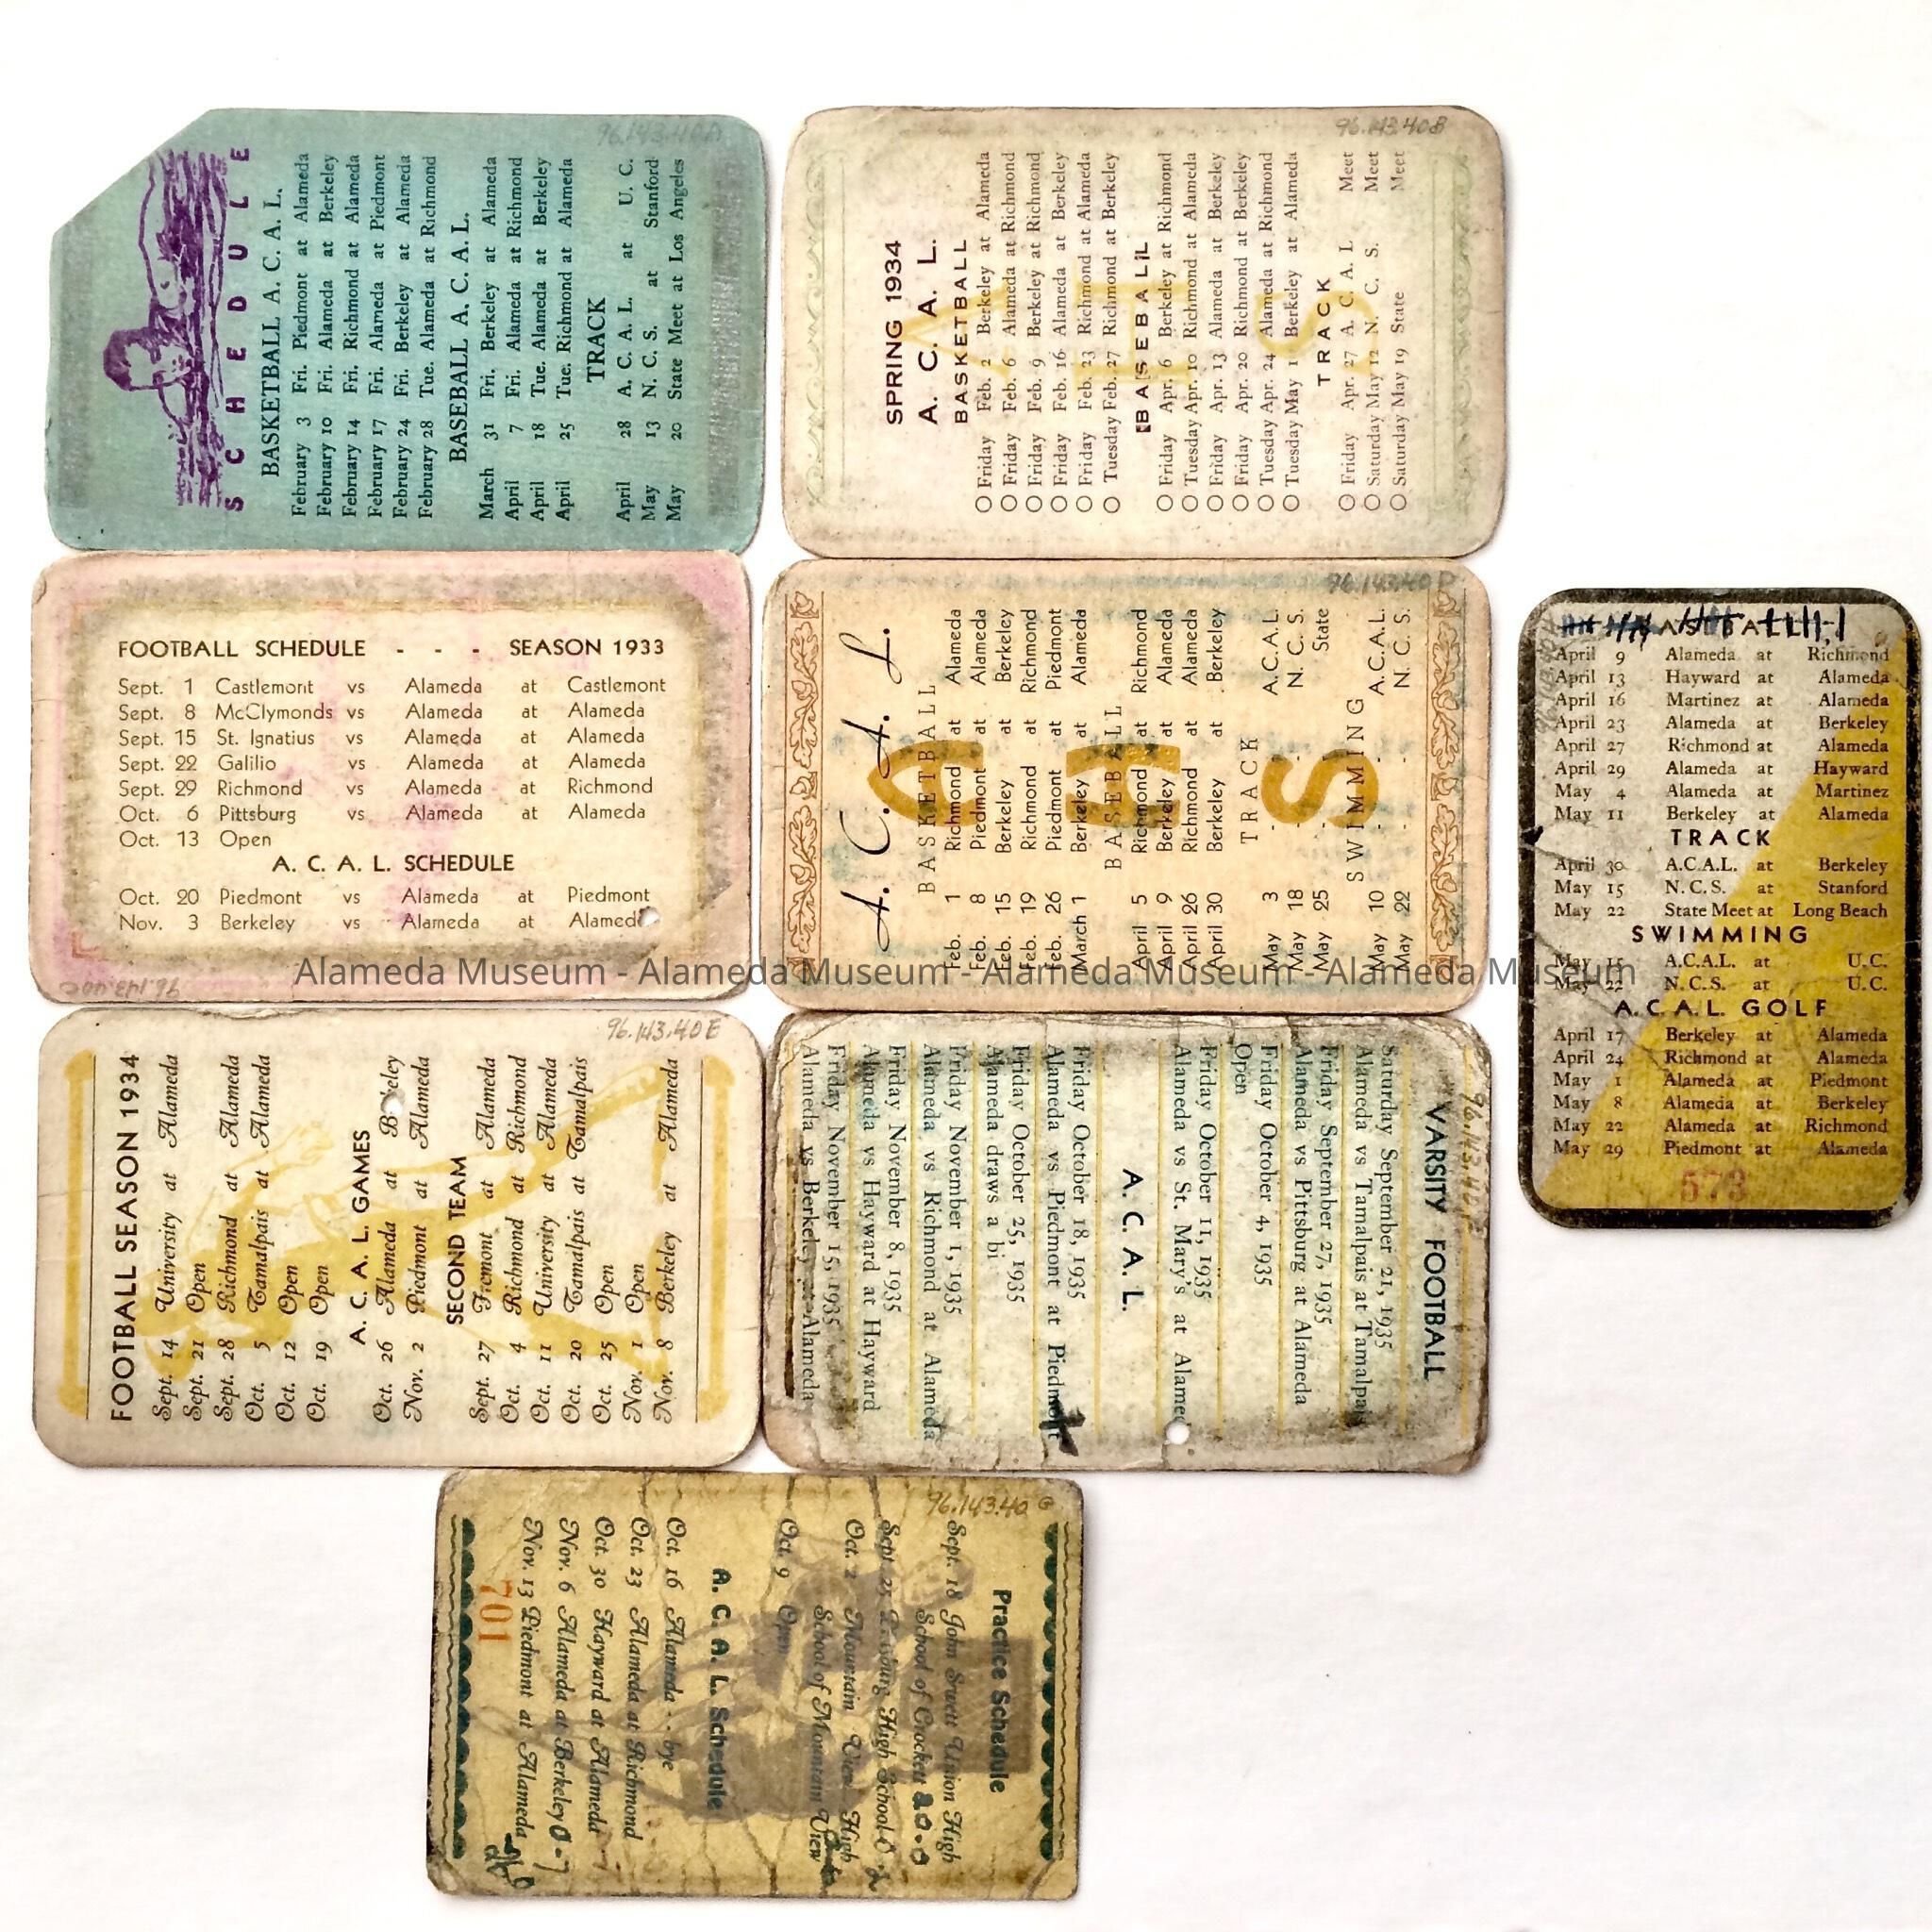 SCHEDULE
BASKETBALL A. C. A. L.
February 3 Fri. Piedmont at Alameda
February 10 Fri. Alameda at Berkeley
February 14 Fri. Richmond at Alameda
February 17 Fri. Alameda at Piedmont
February 24 Fri. Berkeley at Alameda
February 28 Tue. Alameda at Richmond
BASEBALL A. C. A. L.
March 31 Fri. Berkeley at Alameda
April 7 Fri. Alameda at Richmond
April 18 Tue. Alameda at Berkeley
April 25 Tue. Richmond at Alameda
TRACK
April 28 A. C. A. L. at U. C.
May 13 N. C. S. at Stanford
May 20 State Meet at Los Angeles
96.143.40A
SPRING 1934
A. C. A. L.
BASKETBALL
Friday Feb. 2 Berkeley at Alameda
Friday Feb. 6 Alameda at Richmond
Friday Feb. 9 Berkeley at Richmond
Friday Feb. 16 Alameda at Berkeley
Friday Feb. 23 Richmond at Alameda
Tuesday Feb. 27 Richmond at Berkeley
BASEBALL
Friday Apr. 6 Berkeley at Richmond
Tuesday Apr. 10 Richmond at Alameda
Friday Apr. 13 Alameda at Berkeley
Friday Apr. 20 Richmond at Berkeley
Tuesday Apr. 24 Alameda at Richmond
Tuesday May 1 Berkeley at Alameda
TRACK
Friday Apr. 27 A. C. A. L Meet
Saturday May 12 N. C. S. Meet
Saturday May 19 State Meet
AHS
96.143.40B
FOOTBALL SCHEDULE - - - SEASON 1933
Sept. 1 Castlemont vs Alameda at Castlemont
Sept. 8 McClymonds vs Alameda at Alameda
Sept. 15 St. Ignatius vs Alameda at Alameda
Sept. 22 Galilio vs Alameda at Alameda
Sept. 29 Richmond vs Alameda at Richmond
Oct. 6 Pittsburg vs Alameda at Alameda
Oct. 13 Open
A. C. A. L. SCHEDULE
Oct. 20 Piedmont vs Alameda at Piedmont
Nov. 3 Berkeley vs Alameda at Alamed
96.143.40C
A. C. A. L.
BASKETBALL
Feb. 1 Richmond at Alameda
Feb. 8 Piedmont at Alameda
Feb. 15 Berkeley at Berkeley
Feb. 19 Richmond at Richmond
Feb. 26 Piedmont at Piedmont
March 1 Berkeley at Alameda
BASEBALL
April 5 Richmond at Richmond
April 9 Berkeley at Alameda
April 26 Richmond at Alameda
April 30 Berkeley at Berkeley
TRACK
May 3 - - A.C.A.L.
May 18 - - N. C. S.
May 25 - - State
SWIMMING
May 10 - - A.C.A.L.
May 22 - - N. C. S.
AHS
96.143.40D
BASEBALL
April 9 Alameda at Richmond
April 13 Hayward at Alameda
April 16 Martinez at Alameda
April 23 Alameda at Berkeley
April 27 Richmond at Alameda
April 29 Alameda at Hayward
May 4 Alameda at Martinez
May 11 Berkeley at Alameda
TRACK
April 30 A.C.A.L. at Berkeley
May 15 N.C.S. at Stanford
May 22 State Meet at Long Beach
SWIMMING
May 15 A.C.A.L. at U.C.
May 22 N.C.S. at U.C.
A.C.A.L. GOLF
April 17 Berkeley at Alameda
April 24 Richmond at Alameda
May 1 Alameda at Piedmont
May 8 Alameda at Berkeley
May 22 Alameda at Richmond
May 29 Piedmont at Alameda
573
Alameda Museum - Alameda Museum - Alameda Museum - Alameda Museum
FOOTBALL SEASON 1934
Sept. 14 University at Alameda
Sept. 21 Open
Sept. 28 Richmond at Alameda
Oct. 5 Tamalpais at Alameda
Oct. 12 Open
Oct. 19 Open
A. C. A. L. GAMES
Oct. 26 Alameda at B keley
Nov. 2 Piedmont at Alameda
SECOND TEAM
Sept. 27 Fremont at Alameda
Oct. 4 Richmond at Richmond
Oct. 11 University at Alameda
Oct. 20 Tamalpais at Tamalpais
Oct. 25 Open
Nov. 1 Open
Nov. 8 Berkeley at Alameda
96.143.40E
VARSITY FOOTBALL
Saturday September 21, 1935
Alameda vs Tamalpais at Tamalpais
Friday September 27, 1935
Alameda vs Pittsburg at Alameda
Friday October 4, 1935
Open
Friday October 11, 1935
Alameda vs St. Mary's at Alamed
A. C. A. L.
Friday October 18, 1935
Alameda vs Piedmont at Piedmont
Friday October 25, 1935
Alameda draws a bi
Friday November 1, 1935
Alameda vs Richmond at Alameda
Friday November 8, 1935
Alameda vs Hayward at Hayward
Friday November 15, 1935
Alameda vs Berkeley at Alameda
96.143.40F
Practice Schedule
Sept. 18 John Swett Union High
School of Crockett 20-0
Sept. 25 Pittsburg High School
Oct. 2 Mountain View High
School of Mountain View
Oct. 9 Open
A. C. A. L. Schedule
Oct. 16 Alameda - - bye
Oct. 23 Alameda at Richmond
Oct. 30 Hayward at Alameda
Nov. 6 Alameda at Berkeley 0-7
Nov. 13 Piedmont at Alameda
701
96.143.40G